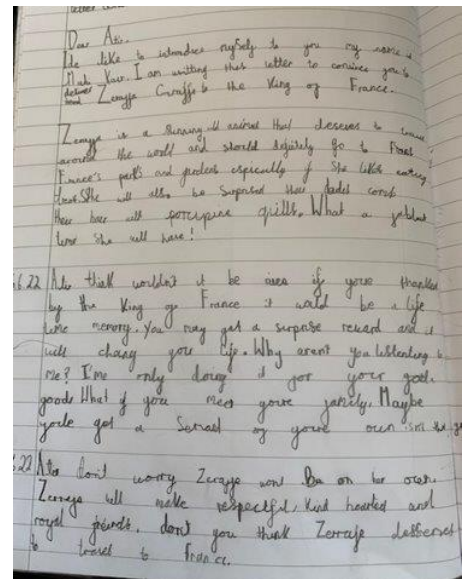 Dear Atir.
I'de like to introduce myself to you my name is
I am writting this letter to convince you to
deliver Zeraffe Giraffe to the King of France.
Zeraffe is a stunning animal that deserves to travel
around the world and should definitely go to
France's parks and gardens especially if she likes eating
She will also be surprised how ladies comb
their hair with porcupine quills. What a
time she will have!
6.22 Atir think wouldn't it be if youre thanked
by the King of France it would be a life
time memory. You may get a surprise reward and it
will chang your life. Why aren't you listening to
me? I'me only doing it for your
good. What if you meet youre family. Maybe
you'le get a of youre own isn't
.22 Atir don't worry Zeraffe wont Be on her own.
Zeraffe will make respectful, kind hearted and
royal friends. don't you think Zerrafe
to travel to France.